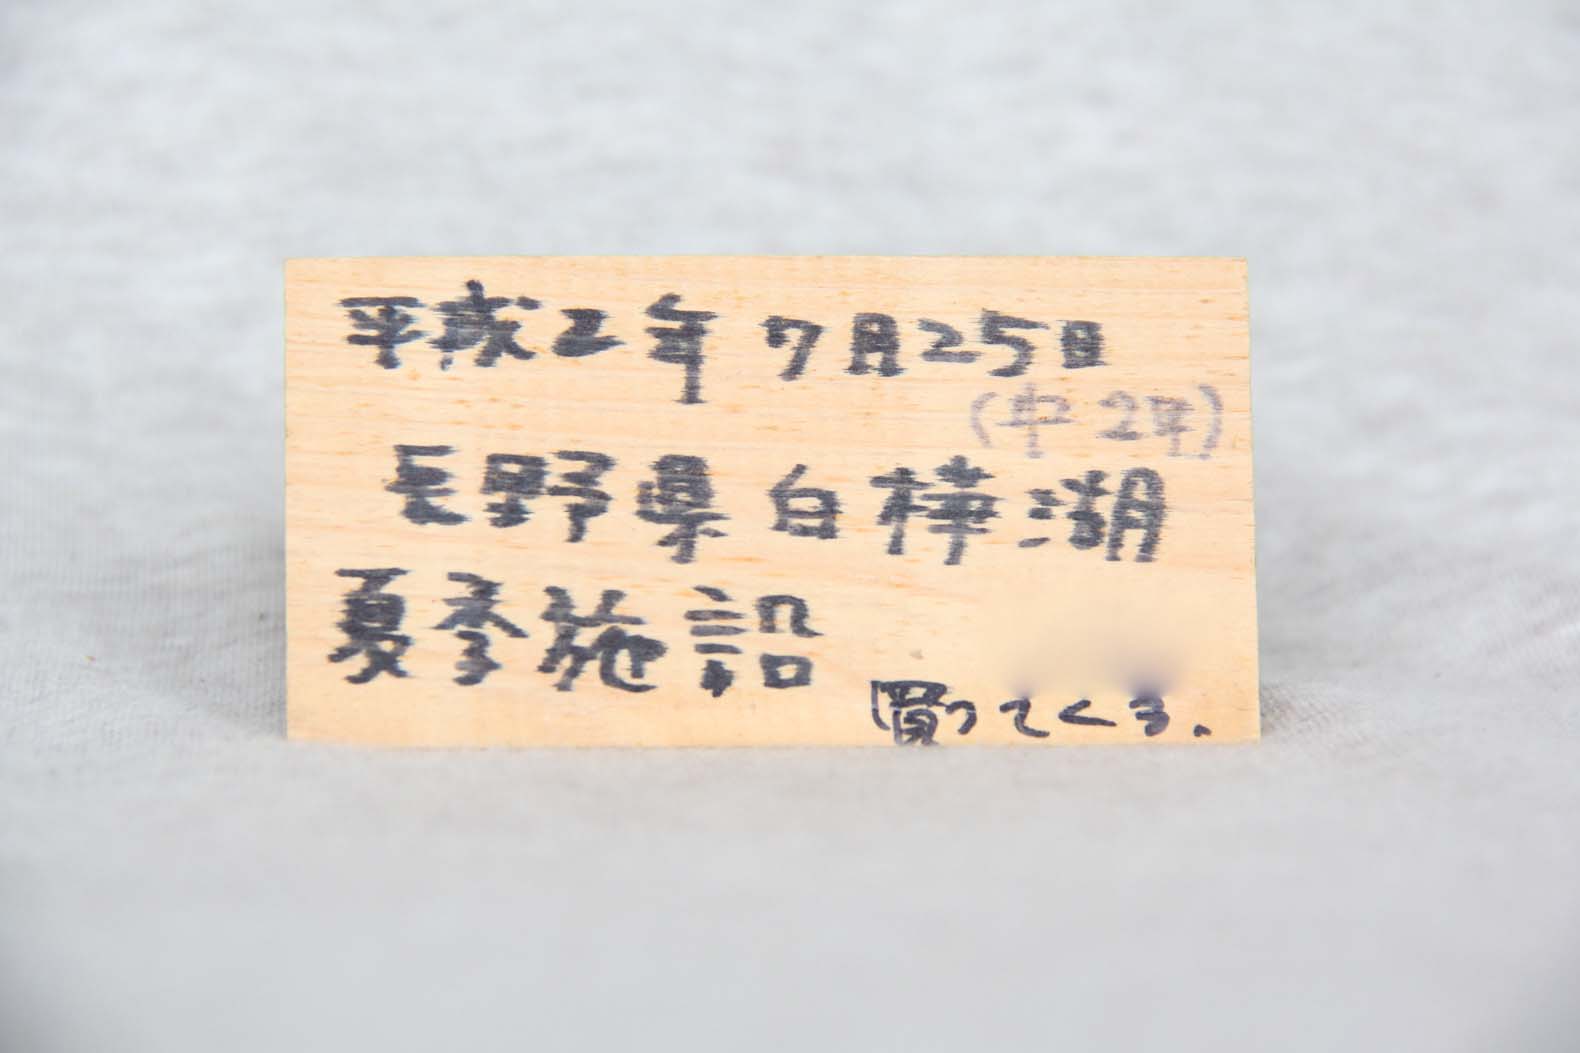 平成2年7月25日
(中2年)
長野県白樺湖
夏季施設
買ってくる.